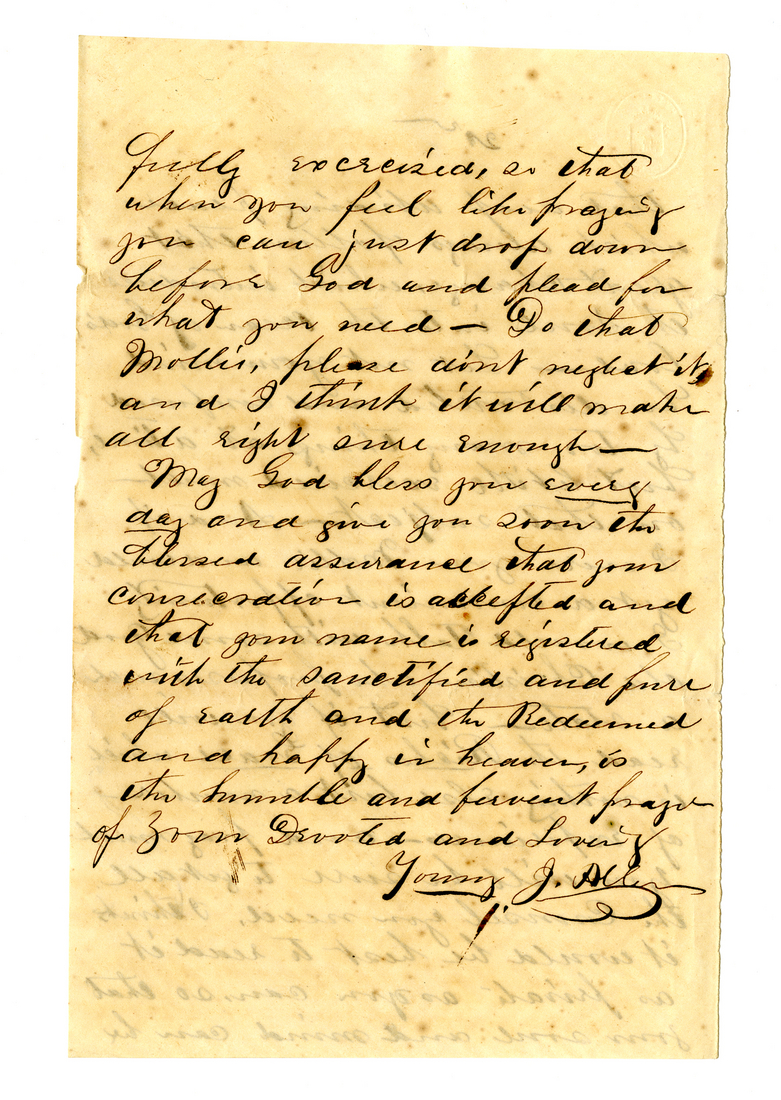 fully excercised, so that
when you feel like praying
you can just drop down
before God and plead for
what you need — Do that
Mollie, please don't neglect it,
and I think it will make
all right sure enough —
May God bless you every
day and give you soon the
blessed assurance that your
consecration is accepted and
that your name is registered
with the sanctified and pure
of earth and the Redeemed
and happy in heaven, is
the humble and fervent prayer
of Your Devoted and Loving
Young J. Allen